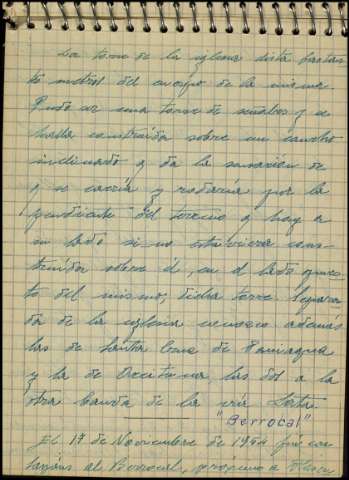 La torre de la iglesia dista bastan-
te metros del cuerpo de la misma.
Pudo ser una torre de señales y se
halla construida sobre un cancho
inclinado y da la sensación de
q se caería y rodaría por la
pendiente del terreno q hay a
su lado si no estuviera cons-
truida sobre él, en el lado opues-
to del mismo, dicha torre separa-
da de la iglesia conozco además
las de Santa Cruz de Paniagua
y la de las dos a la
otra banda de la
"Berrocal"
El 17 de Noviembre de 1954 fui con
al Berrocal, próximo a